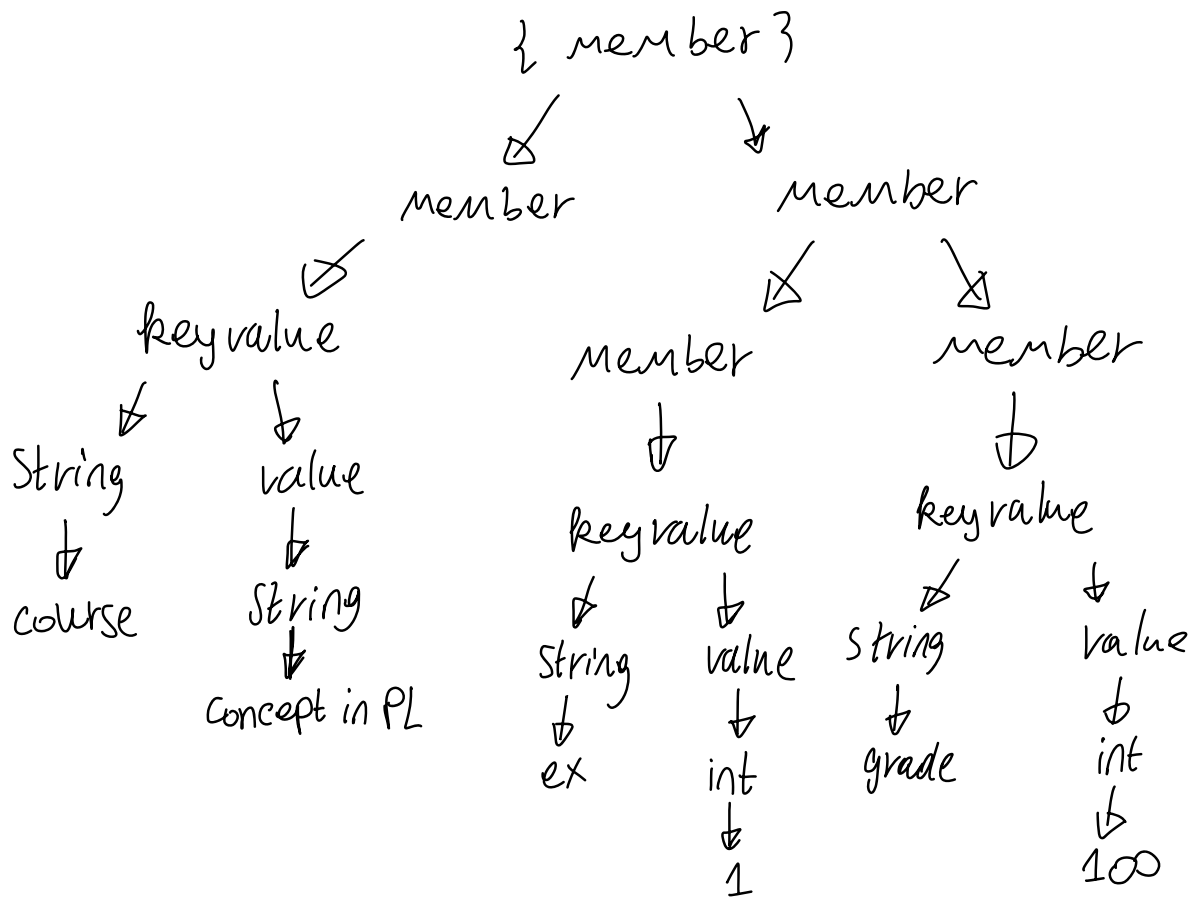 { member }
member
member
keyvalue
member
member
String
value
keyvalue
keyvalue
course
String
String
value
string
value
concept in PL
ex
int
grade
int
1
100